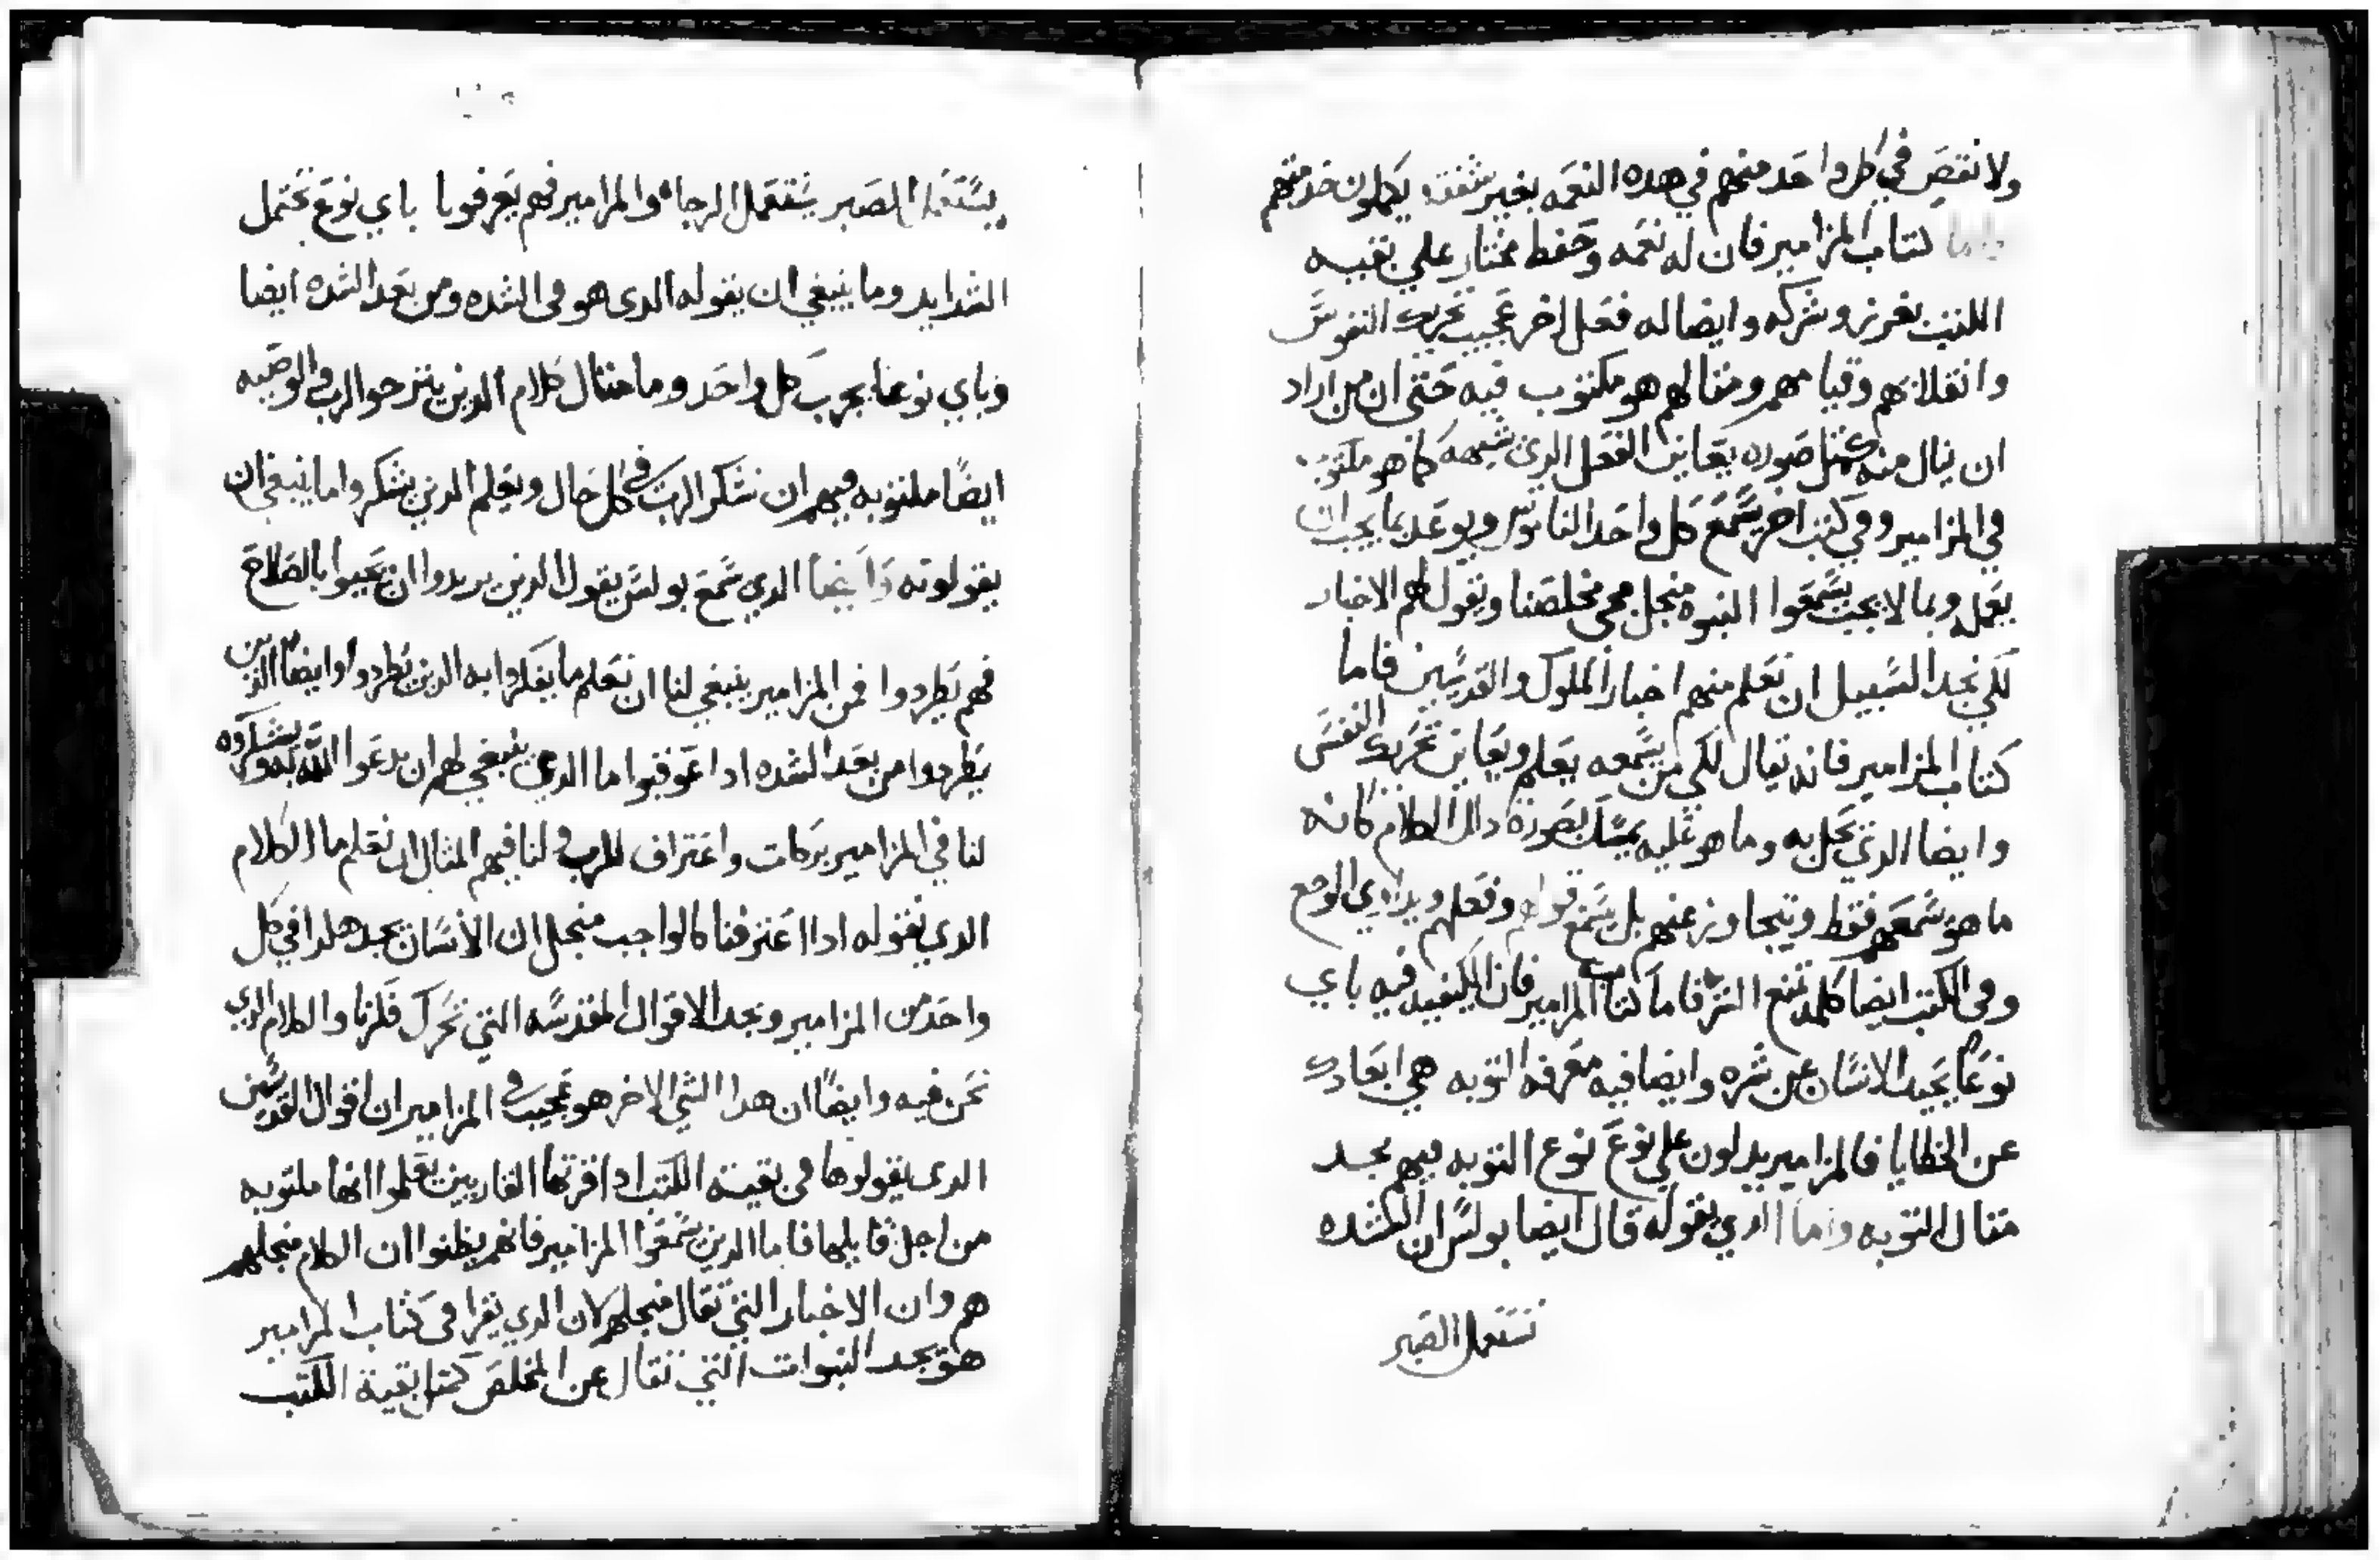 ولا نقص في كل واحد منهم في هده النعمه بغير شفقه يكملون خدمتهم
واما كتاب المزامير فان له نعمه وحفظ مختار علي بقيه
الكتب بفرز وشركه وايضا له فعل اخر عجيب تحريك النفوس
وانقلابهم وقيامهم ومثالهم هو مكتوب فيه حتى ان من اراد
ان ينال منه كمثل صوره يعاين الفعل الدي شبهه كما هو مكتوب
في المزامير وفي كتب اخر يسمع كل واحد الناموس ويوعد بما يجب ان
يعمله وبما لا يجب يسمعوا النبوه منجل مجي مخلصنا ويقول لهم الاخبار
لكي نجد السبيل ان نعلم منهم اخبار الملوك والقديسين فاما
كتاب المزامير فانه يقال لكي من يسمعه يعلم ويعاين تحريك النفس
وايضا الدي يحل به وما هو عليه يمسك بصورة دالك الكلام كانه
ما هو سمعهم فقط ويتجاوز عنهم بل يسمع قولهم وفعلهم ويداوي الوجع
وفي الكتب ايضا كلمه تمنع الشر فاما كتاب المزامير فان الكيفيه فيه باي
نوعا يحيد الانسان عن شره وايضا فيه معرفة التوبه هي ابعادك
عن الخطايا فالمزامير يدلون علي نوع نوع التوبه فيهم نجد
مثال التوبه واما الدي يقوله قال ايضا بولس ان الشده
تستعمل الصبر
يستعمل الصبر يستعمل الرجاء والمزامير فهم يعرفونا باي نوع نحتمل
الشدايد وما ينبغي ان يقوله الدي هو في الشده ومن بعد الشده ايضا
وباي نوعا يجرب كل واحد وما مثال كلام الدين يترجوا الرب والوصيه
ايضا مكتوبه فيهم ان نشكر الرب في كل حال ويعلم الدين يشكروا ما ينبغي ان
يقولونه وايضا الدي سمع بولس يقول الدين يريدوا ان يحيوا بالصلاح
فهم يطردوا فمن المزامير ينبغي لنا ان نعلم ما يفكروا به الدين يطردوا وايضا الدين
يطردوا من بعد الشده ادا عوقبوا ما الدي ينبغي لهم ان يدعوا الله به ويشكروه
لنا في المزامير بركات واعتراف للرب ولنا فيهم المثال ان نعلم ما الكلام
الدي نقوله ادا اعترفنا كالواجب منجل ان الانسان يجد هكدا في كل
واحد من المزامير ونجد الاقوال المقدسه التي تحرك فكرنا والكلام الدي
نحن فيه وايضا ان هدا الشي الاخر هو عجيب في المزامير ان اقوال القديسين
الدي يقولوها في بقية الكتب ادا قروها القاريين يعلموا انها مكتوبه
من اجل قايليها فاما الدين يسمعوا المزامير فانهم يظنوا ان الكلام منجلهم
هم وان الاخبار التي تقال منجلهم لان الدي يقرا في كتاب المزامير
هو يجد النبوات التي تقال عن المخلص كمثل بقية الكتب